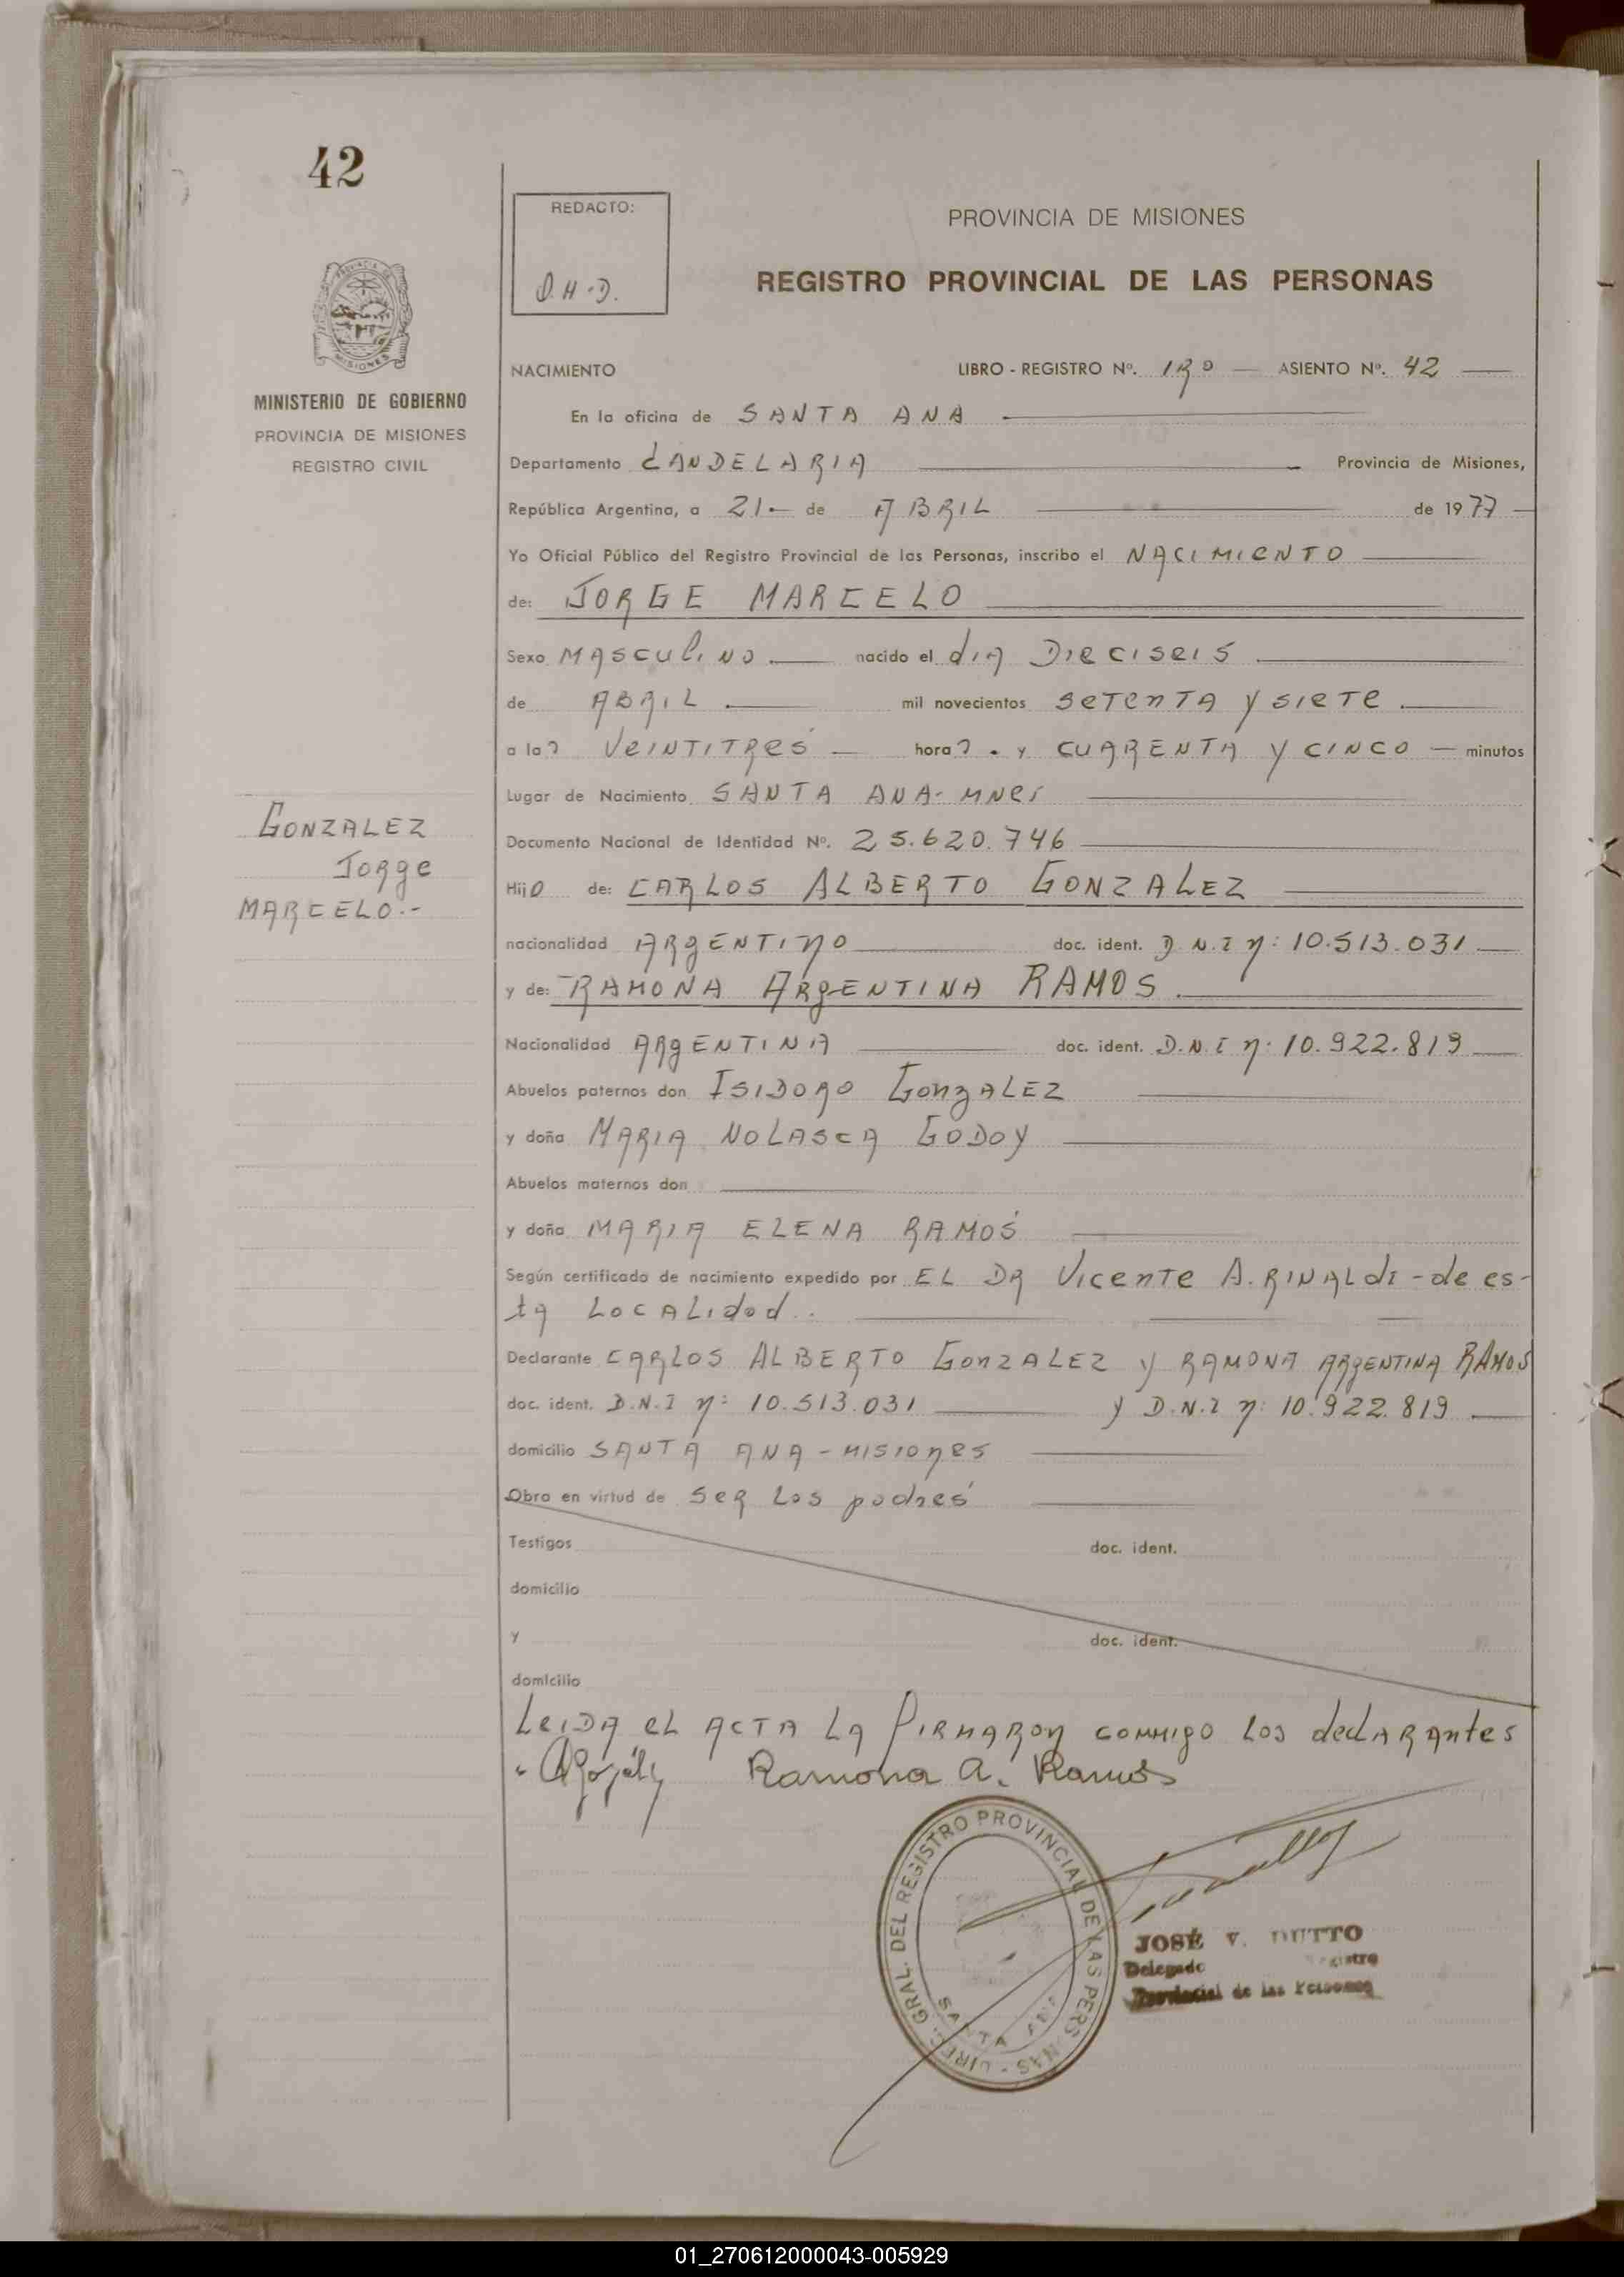 42
REDACTO:
O.H.D.
PROVINCIA DE MISIONES
REGISTRO PROVINCIAL DE LAS PERSONAS
MINISTERIO DE GOBIERNO
PROVINCIA DE MISIONES
REGISTRO CIVIL
NACIMIENTO LIBRO - REGISTRO Nº. 1Rº ASIENTO Nº. 42
En la oficina de SANTA ANA
Departamento CANDELARIA Provincia de Misiones,
República Argentina, a 21.- de ABRIL de 1977
Yo Oficial Público del Registro Provincial de las Personas, inscribo el NACIMIENTO
de: JORGE MARCELO
Sexo MASCULINO. nacido el dia DIECISEIS
de ABRIL. mil novecientos SETENTA Y SIETE.
a las VEINTITRES horas. y CUARENTA Y CINCO minutos
Lugar de Nacimiento SANTA ANA- MNES
Documento Nacional de Identidad Nº. 25.620.746
GONZALEZ
Jorge
MARCELO.-
Hijo de: CARLOS ALBERTO GONZALEZ
nacionalidad ARGENTINO doc. ident. D.N.I n: 10.513.031
y de: RAMONA ARGENTINA RAMOS.
Nacionalidad ARGENTINA doc. ident. D.N.I n: 10.922.819
Abuelos paternos don ISIDORO GONZALEZ
y doña MARIA NOLASCA GODOY
Abuelos maternos don
y doña MARIA ELENA RAMOS
Según certificado de nacimiento expedido por EL DR VICENTE A. RINALDI - de es-
ta LOCALIDAD.
Declarante CARLOS ALBERTO GONZALEZ y RAMONA ARGENTINA RAMOS
doc. ident. D.N.I n: 10.513.031 y D.N.I n: 10.922.819
domicilio SANTA ANA - MISIONES
Obra en virtud de SER LOS padres
Testigos doc. ident.
domicilio
y doc. ident.
domicilio
LEIDA EL ACTA LA FIRMARON CONMIGO LOS declarantes
Ramona A. Ramos
DIREC. GRAL. DEL REGISTRO PROVINCIAL DE LAS PERSONAS
SANTA ANA
JOSÉ V. DUTTO
Delegado Registro
Provincial de las Personas
01_270612000043-005929